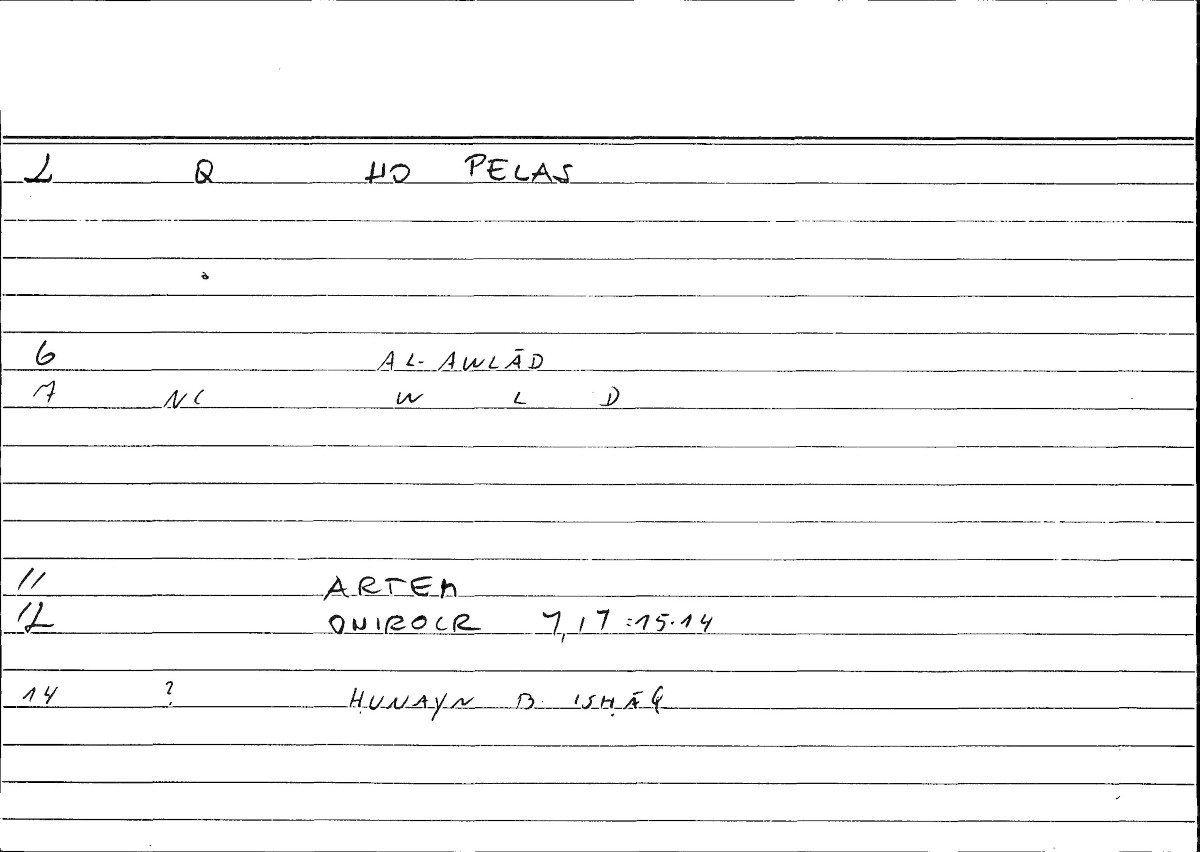 2 Q HO PELAS
6 AL-AWLĀD
7 NC W L D
11 ARTEM
12 ONIROCR 1,17:15.14
14 ? ḤUNAYN B. ISḤĀQ